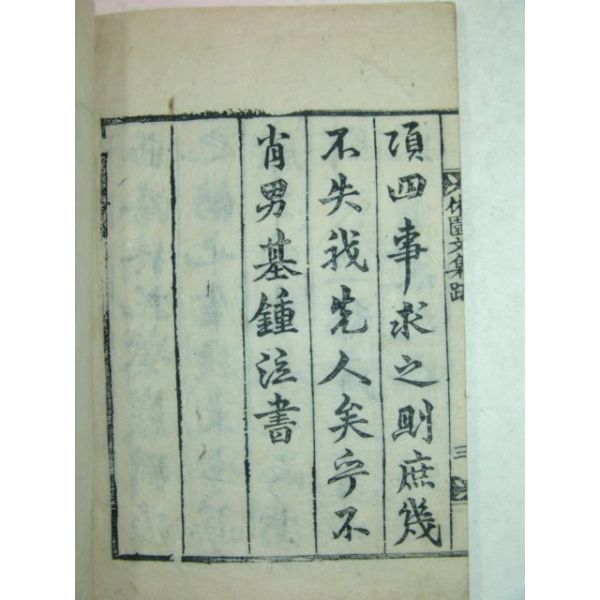 休園文集跋
三
項四事求之則庶幾
不失我先人矣乎不
肖男基鍾泣書